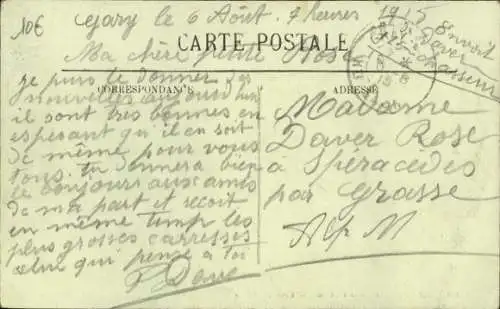 10€
Gary le 6 Août 7 heures 1915
Envoi
Daver
chasseur
CARTE POSTALE
Ma chère petite Rose
CORRESPONDANCE
ADRESSE
je puis te donner des
nouvelles aujourd'hui
il sont tres bonnes en
esperant qu'il en soit
de même pour vous
tous. tu donnera bien
le bonjours aux amis
de ma part et recoit
en même temp les
plus grosses carresses
celui qui pense a toi
Madame
Daver Rose
a Spéracedes
par Grasse
Alp M